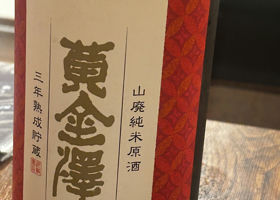 山廃純米原酒
黄金澤
三年熟成貯蔵